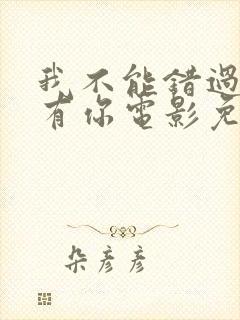 我不能錯過
有你電影免
朵彥彥